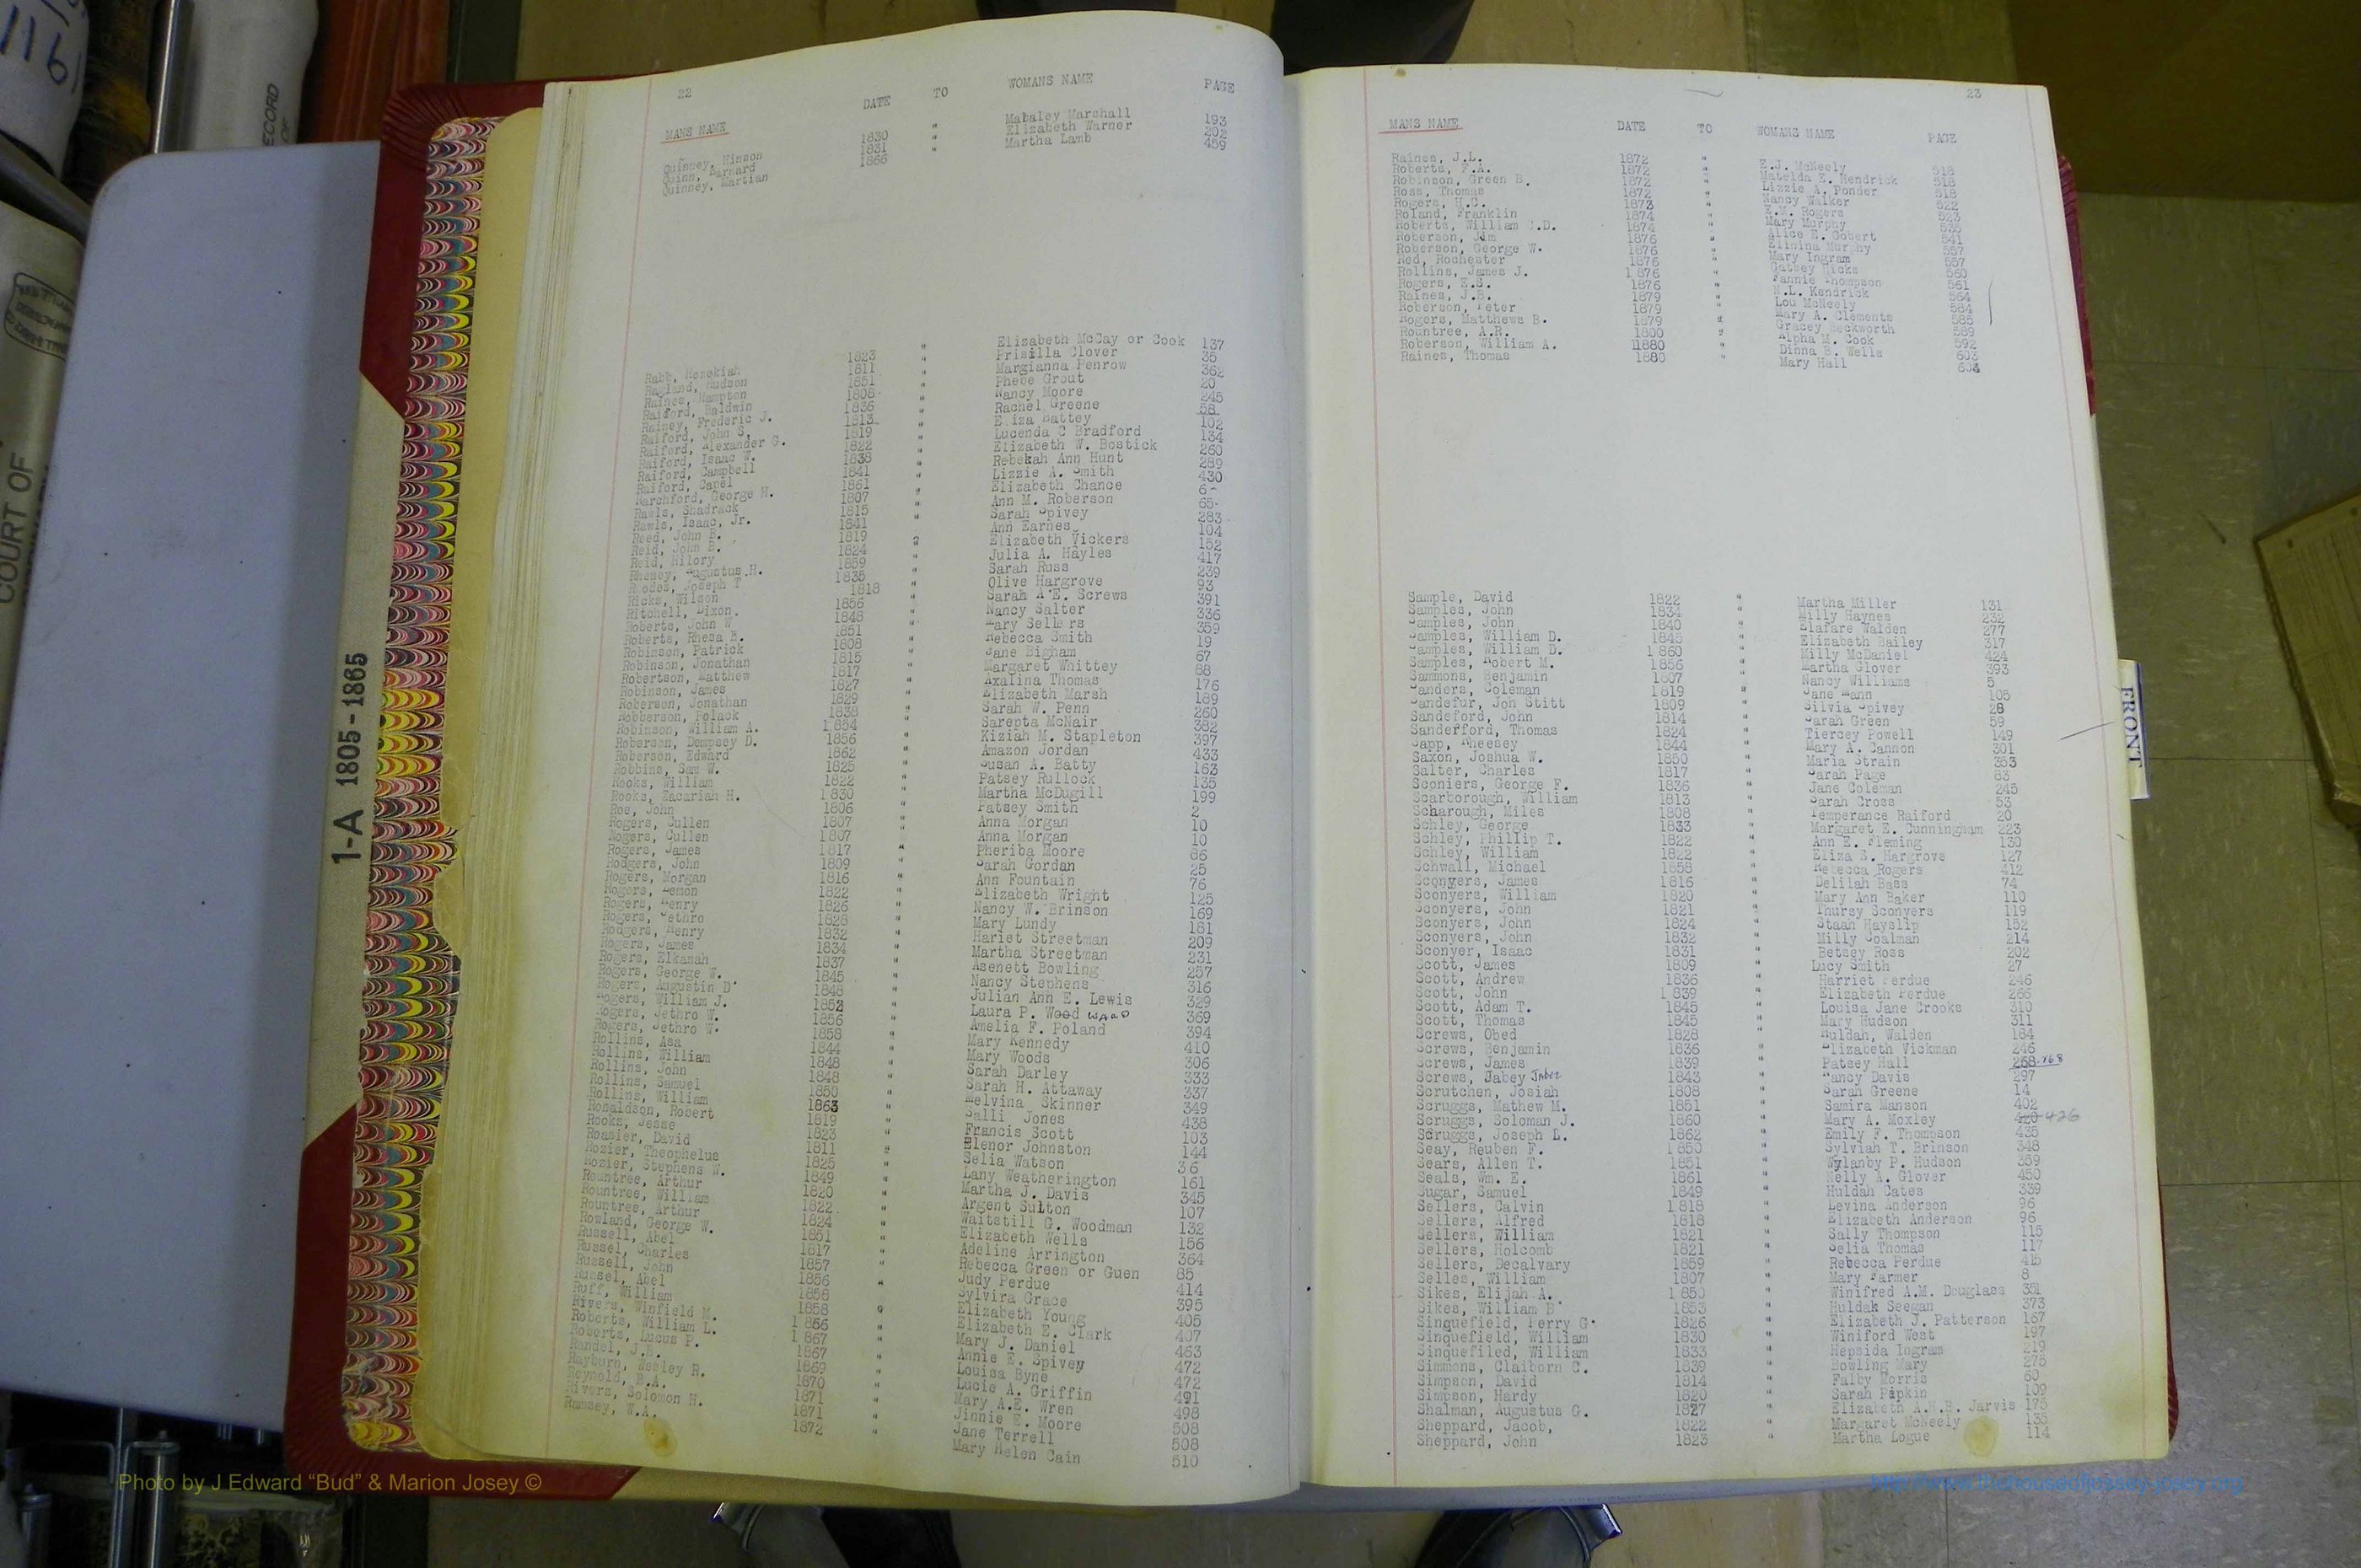 1161
RECORD OF
COURT OF
1-A 1805-1865
22
MANS NAME DATE TO WOMANS NAME PAGE
Quinney, Hinson 1830 " Mabaley Marshall 193
Quinn, Barnard 1831 " Elizabeth Warner 202
Quinney, Martian 1866 " Martha Lamb 459
Rabb, Hezekiah 1823 " Elizabeth McCay or Cook 137
Ragland, Hudson 1811 " Prisilla Clover 35
Raines, Hampton 1851 " Margianna Penrow 362
Raiford, Baldwin 1808 " Phebe Grout 20
Rainey, Frederic J. 1836 " Nancy Moore 245
Raiford, John S. 1813 " Rachel Greene 58
Raiford, Alexander G. 1819 " Eliza Battey 102
Raiford, Isaac W. 1822 " Lucenda C Bradford 134
Raiford, Campbell 1838 " Elizabeth W. Bostick 260
Raiford, Capel 1841 " Rebekah Ann Hunt 289
Rarchford, George H. 1861 " Lizzie A. Smith 430
Rawls, Shadrack 1807 " Elizabeth Chance 6
Rawls, Isaac, Jr. 1815 " Ann M. Roberson 65
Reed, John B. 1841 " Sarah Spivey 283
Reid, John B. 1819 " Ann Earnes 104
Reid, Hilory 1824 " Elizabeth Vickers 152
Rheney, Augustus H. 1859 " Julia A. Hayles 417
Rhodes, Joseph T 1835 " Sarah Russ 239
Ricks, Wilson 1818 " Olive Hargrove 93
Ritchell, Dixon. 1856 " Sarah A E. Screws 391
Roberts, John W 1848 " Nancy Salter 336
Roberts, Rhesa B. 1851 " Mary Sellers 359
Robinson, Patrick 1808 " Rebecca Smith 19
Robinson, Jonathan 1815 " Jane Bigham 67
Robertson, Matthew 1817 " Margaret Whittey 88
Robinson, James 1827 " Axalina Thomas 176
Roberson, Jonathan 1829 " Elizabeth Marsh 189
Robberson, Polack 1838 " Sarah W. Penn 260
Robinson, William A. 1854 " Sarepta McNair 382
Roberson, Dempsey D. 1856 " Kiziah M. Stapleton 397
Roberson, Edward 1862 " Amazon Jordan 433
Robbins, Sam W. 1825 " Susan A. Batty 163
Rooks, William 1822 " Patsey Rullock 135
Rooks, Zacariah H. 1830 " Martha McDugill 199
Roe, John 1806 " Patsey Smith 2
Rogers, Cullen 1807 " Anna Morgan 10
Rogers, Cullen 1807 " Anna Morgan 10
Rogers, James 1817 " Pheriba Moore 86
Rodgers, John 1809 " Sarah Gordan 25
Rogers, Morgan 1816 " Ann Fountain 76
Rogers, Lemon 1822 " Elizabeth Wright 125
Rogers, Henry 1826 " Nancy W. Brinson 169
Rogers, Jethro 1828 " Mary Lundy 181
Rodgers, Henry 1832 " Hariet Streetman 209
Rogers, James 1834 " Martha Streetman 231
Rogers, Elkanah 1837 " Asenett Bowling 257
Rogers, George W. 1845 " Nancy Stephens 316
Rogers, Augustin D 1848 " Julian Ann E. Lewis 329
Rogers, William J. 1852 " Laura P. Wood Wood 369
Rogers, Jethro W. 1856 " Amelia F. Poland 394
Rogers, Jethro W. 1858 " Mary Kennedy 410
Rollins, Asa 1844 " Mary Woods 306
Rollins, William 1848 " Sarah Darley 333
Rollins, John 1848 " Sarah H. Attaway 337
Rollins, Samuel 1850 " Melvina Skinner 349
Rollins, William 1863 " Salli Jones 438
Ronaldson, Robert 1819 " Francis Scott 103
Rooks, Jesse 1823 " Elenor Johnston 144
Roasier, David 1811 " Selia Watson 36
Rozier, Theophelus 1825 " Lany Weatherington 161
Rozier, Stephens W. 1849 " Martha J. Davis 345
Rountree, Arthur 1820 " Argent Sulton 107
Rountree, William 1822 " Waitstill G. Woodman 132
Rountree, Arthur 1824 " Elizabeth Wells 156
Rowland, George W. 1851 " Adeline Arrington 364
Russell, Abel 1817 " Rebecca Green or Guen 85
Russel, Charles 1857 " Judy Perdue 414
Russell, John 1856 " Sylvira Grace 395
Russel, Abel 1858 " Elizabeth Young 405
Ruff, William 1858 " Elizabeth E. Clark 407
Rivers, Winfield M. 1866 " Mary J. Daniel 463
Roberts, William L. 1867 " Annie E. Spivey 472
Roberts, Lucus P. 1867 " Louisa Byne 472
Randel, J.B. 1869 " Lucie A. Griffin 491
Rayburn, Wesley R. 1870 " Mary A.E. Wren 498
Reynold, B.A. 1871 " Jinnie E. Moore 508
Rivers, Solomon H. 1871 " Jane Terrell 508
Ramsey, W.A. 1872 " Mary Helen Cain 510
23
MANS NAME DATE TO WOMANS NAME PAGE
Raines, J.L. 1872 " E.J. McNeely 518
Roberts, F.A. 1872 " Matelda E. Kendrick 518
Robinson, Green B. 1872 " Lizzie A. Ponder 518
Ross, Thomas 1872 " Nancy Walker 522
Rogers, H.C. 1873 " E.M. Rogers 523
Roland, Franklin 1874 " Mary Murphy 535
Roberts, William C.D. 1874 " Alice E. Gobert 541
Roberson, Jim 1876 " Elinina Murphy 557
Roberson, George W. 1876 " Mary Ingram 557
Red, Rochester 1876 " Gatsey Hicks 560
Rollins, James J. 1876 " Fannie Thompson 561
Rogers, E.S. 1876 " M.L. Kendrick 564
Raines, J.B. 1879 " Lou McNeely 584
Roberson, Peter 1879 " Mary A. Clements 585
Rogers, Matthews B. 1879 " Gracey Beckworth 589
Rountree, A.R. 1800 " Alpha M. Cook 592
Roberson, William A. 1880 " Dinna B. Wells 603
Raines, Thomas 1880 " Mary Hall 604
Sample, David 1822 " Martha Miller 131
Samples, John 1834 " Milly Haynes 232
Samples, John 1840 " Elafare Walden 277
Samples, William D. 1845 " Elizabeth Bailey 317
Samples, William D. 1860 " Milly McDaniel 424
Samples, Robert M. 1856 " Martha Glover 393
Sammons, Benjamin 1807 " Nancy Williams 5
Sanders, Coleman 1819 " Jane Mann 105
Sandefur, Joh Stitt 1809 " Silvia Spivey 28
Sandeford, John 1814 " Sarah Green 59
Sanderford, Thomas 1824 " Tiercey Powell 149
Sapp, Rheesey 1844 " Mary A. Cannon 301
Saxon, Joshua W. 1850 " Maria Strain 353
Salter, Charles 1817 " Sarah Page 83
Sconiers, George F. 1836 " Jane Coleman 245
Scarborough, William 1813 " Sarah Cross 53
Scharough, Miles 1808 " Temperance Raiford 20
Schley, George 1833 " Margaret E. Cunningham 223
Schley, Phillip T. 1822 " Ann E. Fleming 130
Schley, William 1822 " Eliza S. Hargrove 127
Schwall, Michael 1858 " Rebecca Rogers 412
Sconyers, James 1816 " Delilah Bass 74
Sconyers, William 1820 " Mary Ann Baker 110
Sconyers, John 1821 " Thursy Sconyers 119
Sconyers, John 1824 " Staah Hayslip 152
Sconyers, John 1832 " Milly Coalman 214
Sconyer, Isaac 1831 " Betsey Ross 202
Scott, James 1809 " Lucy Smith 27
Scott, Andrew 1836 " Harriet Perdue 246
Scott, John 1839 " Elizabeth Perdue 266
Scott, Adam T. 1845 " Louisa Jane Crooks 310
Scott, Thomas 1845 " Mary Hudson 311
Screws, Obed 1828 " Huldah, Walden 184
Screws, Benjamin 1836 " Elizabeth Vickman 246
Screws, James 1839 " Patsey Hall 268 268
Screws, Jabey Jabez 1843 " Nancy Davis 297
Scrutchen, Josiah 1808 " Sarah Greene 14
Scruggs, Mathew M. 1851 " Samira Manson 402
Scruggs, Soloman J. 1860 " Mary A. Moxley 420 426
Scruggs, Joseph L. 1862 " Emily F. Thompson 435
Seay, Reuben F. 1850 " Sylviah T. Brinson 348
Sears, Allen T. 1851 " Wylanby P. Hudson 359
Seals, Wm. E. 1861 " Kelly A. Glover 430
Sugar, Samuel 1849 " Huldah Cates 339
Sellers, Calvin 1818 " Levina Anderson 96
Sellers, Alfred 1818 " Elizabeth Anderson 96
Sellers, William 1821 " Sally Thompson 115
Sellers, Holcomb 1821 " Selia Thomas 117
Sellers, Decalvary 1859 " Rebecca Perdue 415
Selles, William 1807 " Mary Farmer 8
Sikes, Elijah A. 1850 " Winifred A.M. Douglass 351
Sikes, William B 1853 " Huldak Seegan 373
Sinquefield, Perry G. 1826 " Elizabeth J. Patterson 167
Sinquefield, William 1830 " Winiford West 197
Sinquefiled, William 1833 " Hepsida Ingram 219
Simmons, Claiborn C. 1839 " Bowling Mary 275
Simpson, David 1814 " Falby Morris 60
Simpson, Hardy 1820 " Sarah Pipkin 109
Shalman, Augustus G. 1827 " Elizabeth A.M.B. Jarvis 175
Sheppard, Jacob, 1822 " Margaret McNeely 135
Sheppard, John 1823 " Martha Logue 114
FRONT
Photo by J Edward “Bud” & Marion Josey ©
http://www.thehouseofjossey-josey.org